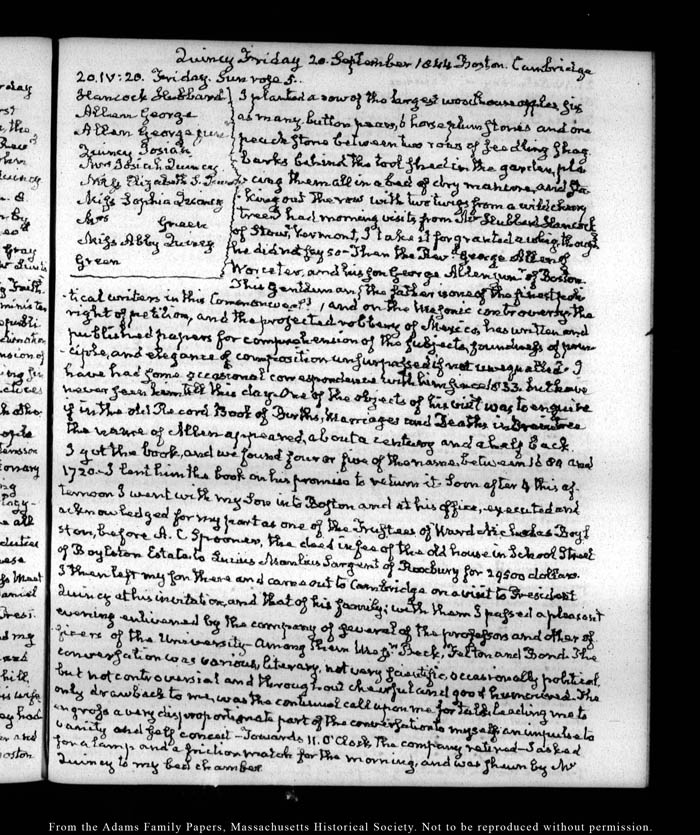 Quincy Friday 20. September 1844 Boston. Cambridge
20. IV:20. Friday. Sun rose 5..
Hancock Hubbard
Allen George
Allen George junr
Quincy Josiah
Mrs Josiah Quincy
Miss Elizabeth S.
Miss Sophia Quincy
Mrs Green
Miss Abby Quincy
Green
I planted a row of the largest woodhouse apples six
as many button pears, 6 horseplum stones and one
peach stone between two rows of seedling shag
barks behind the tool shed in the garden, pla-
cing them all in a bed of dry manure, and sta-
king out the row with two twigs from a wild cherry
tree. I had morning visits from Mr Hubbard Hancock
of Stow, Vermont, I take it for granted a whig though
he did not say so— Then the Revd George Allen of
Worcester, and his son George Allen junr of Boston.
This Gentleman, the father is one of the finest poli-
-tical writers in this Commonwealth, and on the Masonic controversy, the
right of petition, and the projected robbery of Mexico, has written and
published papers for comprehension of the subjects, soundness of prin-
-ciple, and elegance of composition unsurpassed if not unequalled. I
have had some occasional correspondence with him since 1833. but have
never seen him till this day. One of the objects of his visit was to enquire
if in the old Record Book of Births, Marriages and Deaths in Braintree
the name of Allen appeared, about a century and a half back.
I got the book, and we found four or five of the name, between and
1720. I lent him the book on his promise to return it. Soon after 4 this af-
ternoon I went with my Son into Boston and at his office, executed and
acknowledged for my part as one of the Trustees of Ward Nicholas Boyl
ston, before A. C. Spooner, the deed in fee of the old house in School Street
of Boylston Estate to Lucius Manlius Sargent of Roxbury for 29500 dollars.
I then left my son there and came out to Cambridge on a visit to President
Quincy at his invitation, and that of his family; with them I passed a pleasant
evening enlivened by the company of several of the professors and other of-
-ficers of the University— Among them Messrs Beck, Felton and Bond. The
conversation was various, literary, not very scientific, occasionally political,
but not controversial and throughout cheerful and good humoured. The
only drawback to me, was the continual call upon me for talk leading me to
engross a very disproportionate part of the conversation to myself; an impulse to
vanity and self conceit— Towards 11. O'Clock, The company retired— I asked
for a lamp and a friction match for the morning, and was shewn by Mr
Quincy to my bed chamber
rday
the
Gray
Faith
minister
ministers
nsion of
ing
ctures
people
onary
ing
logy-
all
duties
aniel
Presi-
nd my
hill
his wife
ay had
and
oston
From the Adams Family Papers, Massachusetts Historical Society. Not to be reproduced without permission.